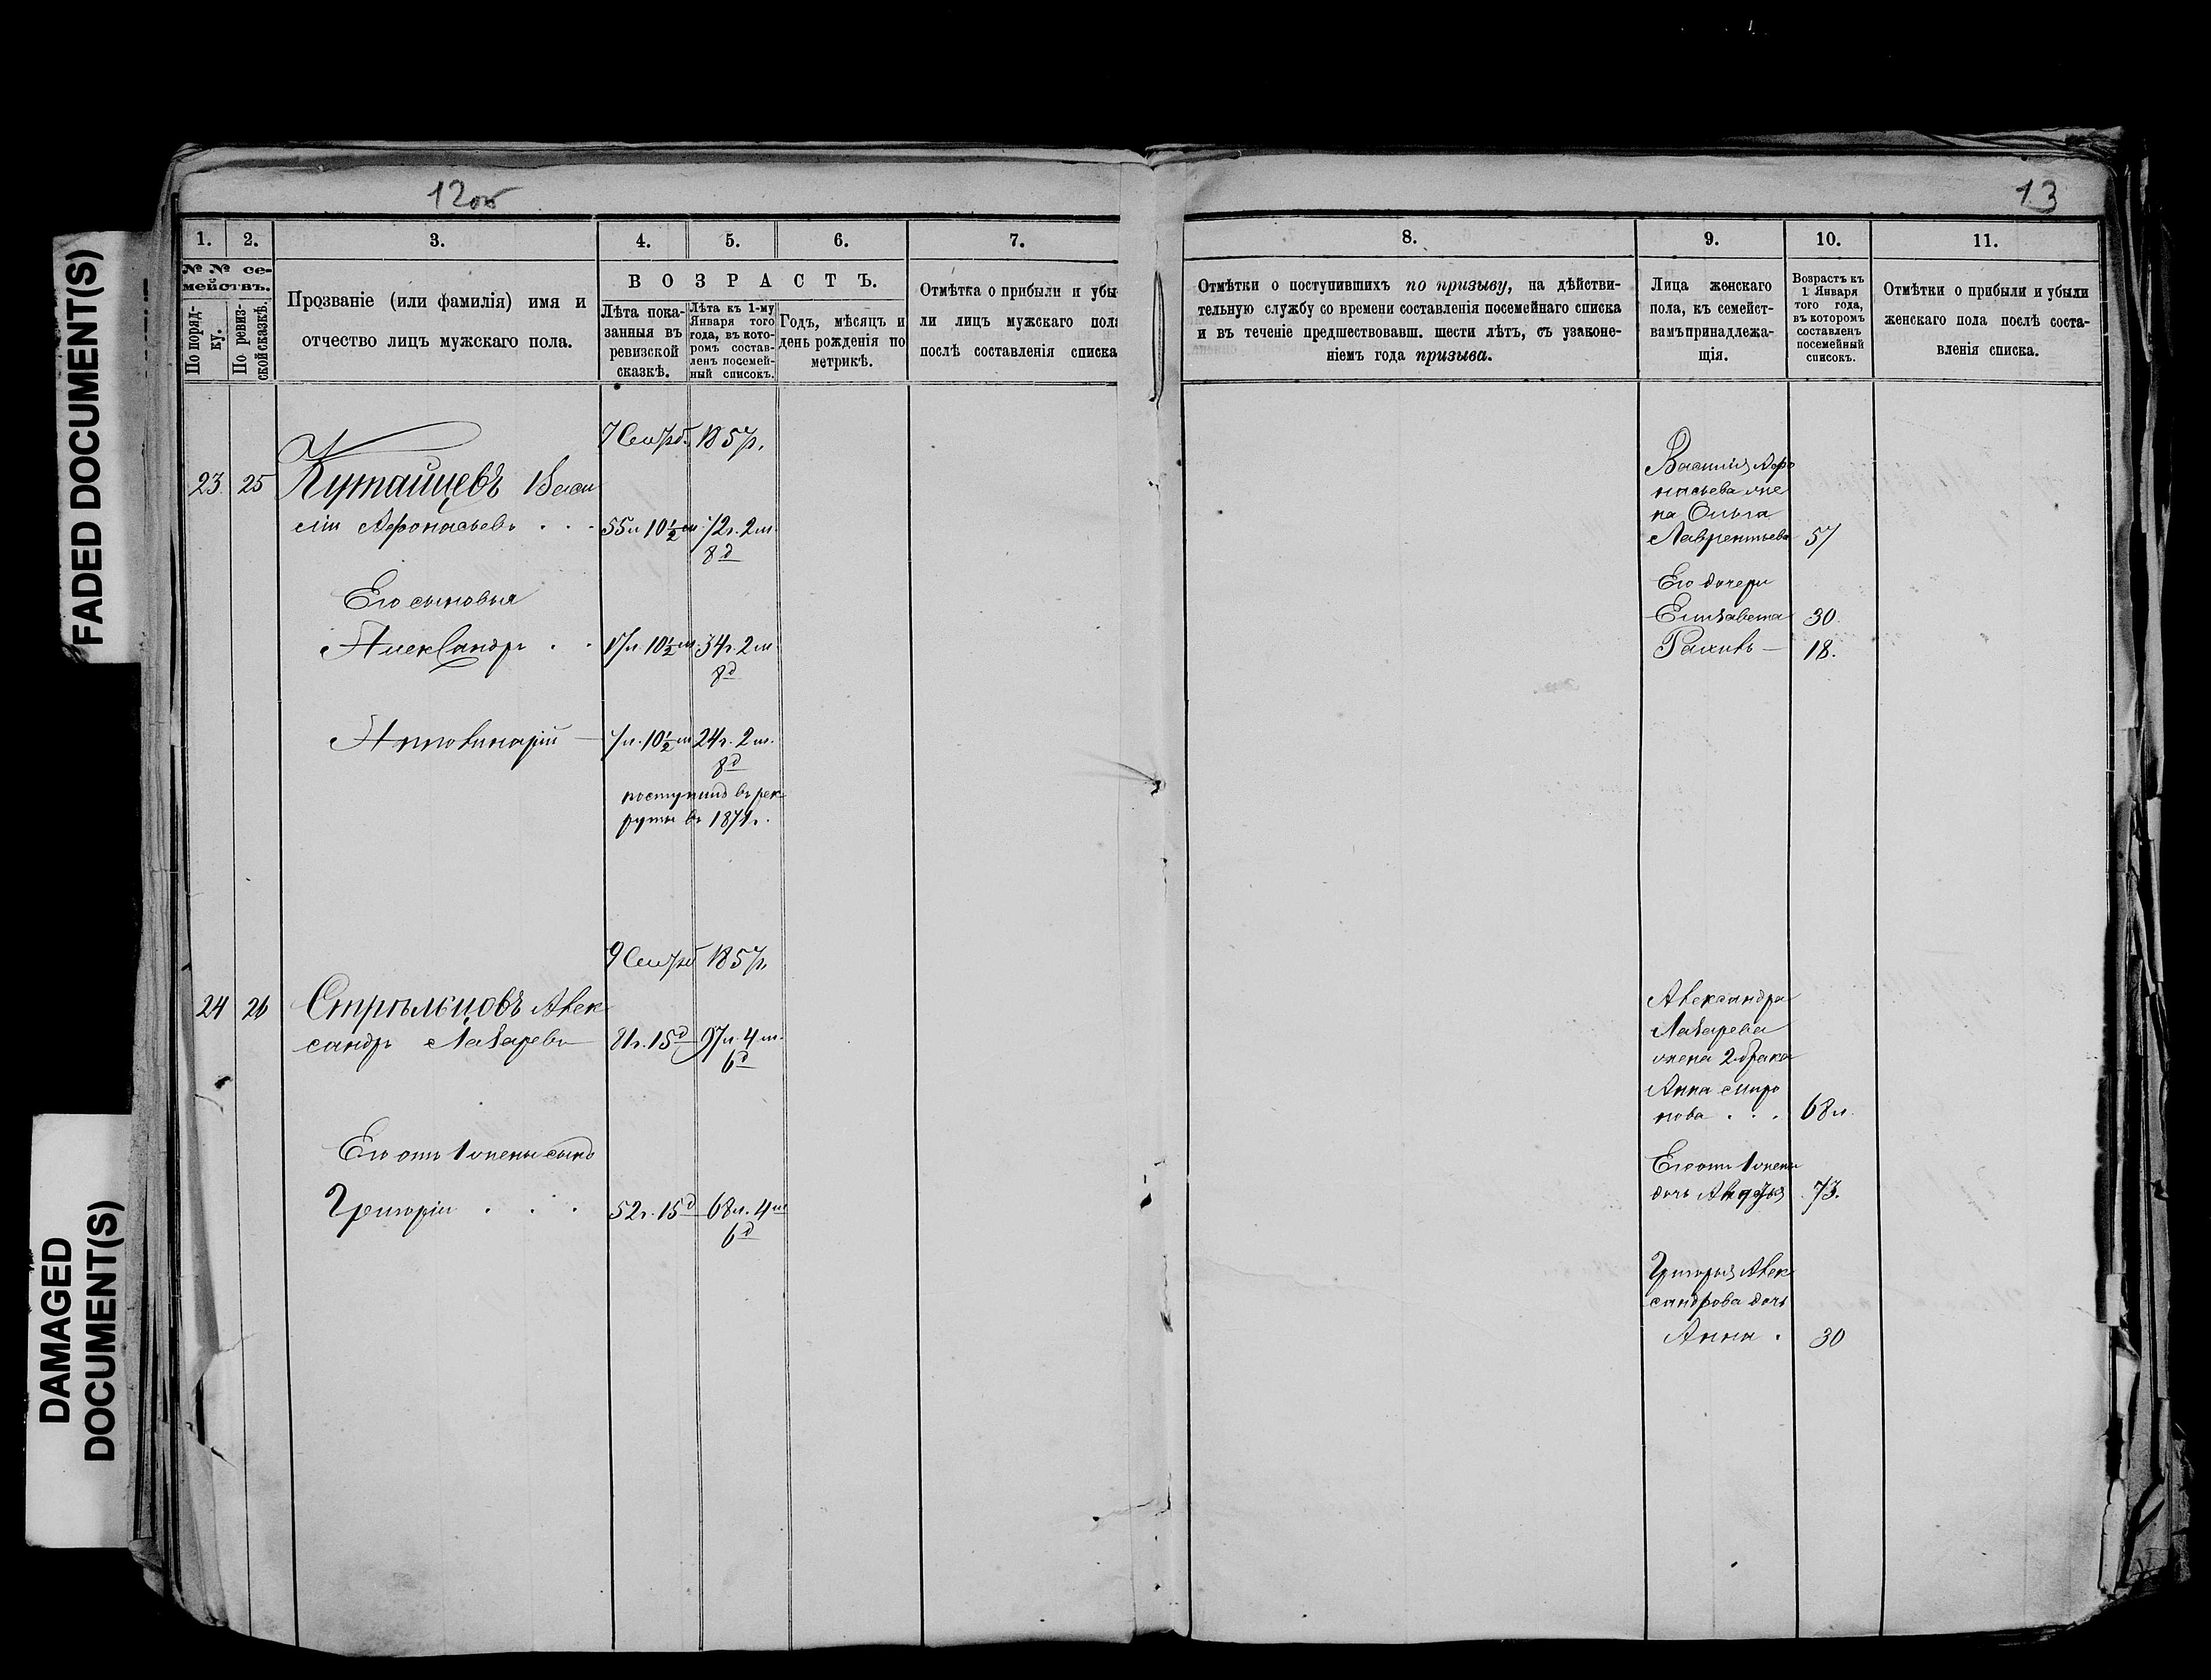 FADED DOCUMENT(S)
DAMAGED
DOCUMENT(S)
12об
1.
2.
3.
4.
5.
6.
7.
№№ се-
мействъ.
По поряд-
ку.
По ревиз-
ской сказкѣ.
Прозваніе (или фамилія) имя и
отчество лицъ мужскаго пола.
ВОЗРАСТЪ.
Лѣта пока-
занныя въ
ревизской
сказкѣ.
Лѣта къ 1-му
Января того
года, въ кото-
ромъ состав-
ленъ посемей-
ный списокъ.
Годъ, мѣсяцъ и
день рожденія по
метрикѣ.
Отмѣтка о прибыли и убы
ли лицъ мужскаго пола
послѣ составленія списка
7 Сентяб. 1857г.
23. 25 Кутайцевъ Васи
лій Афонасьевъ . . . 55л 10½м 72г. 2м.
8д
Его сыновья
Александръ . . 17л. 10½м. 34г. 2м
8д
Апполинарій — 7л. 10½м 24г. 2м.
8д
поступилъ въ рек
руты въ 1871г.
9 Сентяб 1857г.
24 26 Стрѣльцовъ Алек
сандръ Лазаревъ 81г. 15д 97л. 4м.
6д
Его отъ 1 жены сынъ
Григорій . . . 52г. 15д 68л. 4м
6д
13
8.
9.
10.
11.
Отмѣтки о поступившихъ по призыву, на дѣйстви-
тельную службу со времени составленія посемейнаго списка
и въ теченіе предшествовавш. шести лѣтъ, съ узаконе-
ніемъ года призыва.
Лица женскаго
пола, къ семейст-
вамъ принадлежа-
щія.
Возрастъ къ
1 Января
того года,
въ которомъ
составленъ
посемейный
списокъ.
Отмѣтки о прибыли и убыли
женскаго пола послѣ соста-
вленія списка.
Василія Афо
насьева же
на Ольга
Лаврентьева 57
Его дочери
Елизавета 30.
18.
Александра
Лазарева
жена 2 брака
Анна Миро
нова . . . 68л.
Его отъ 1 жены
дочь Авдотья 73.
Григорья Алек
сандрова дочь
Анна . 30